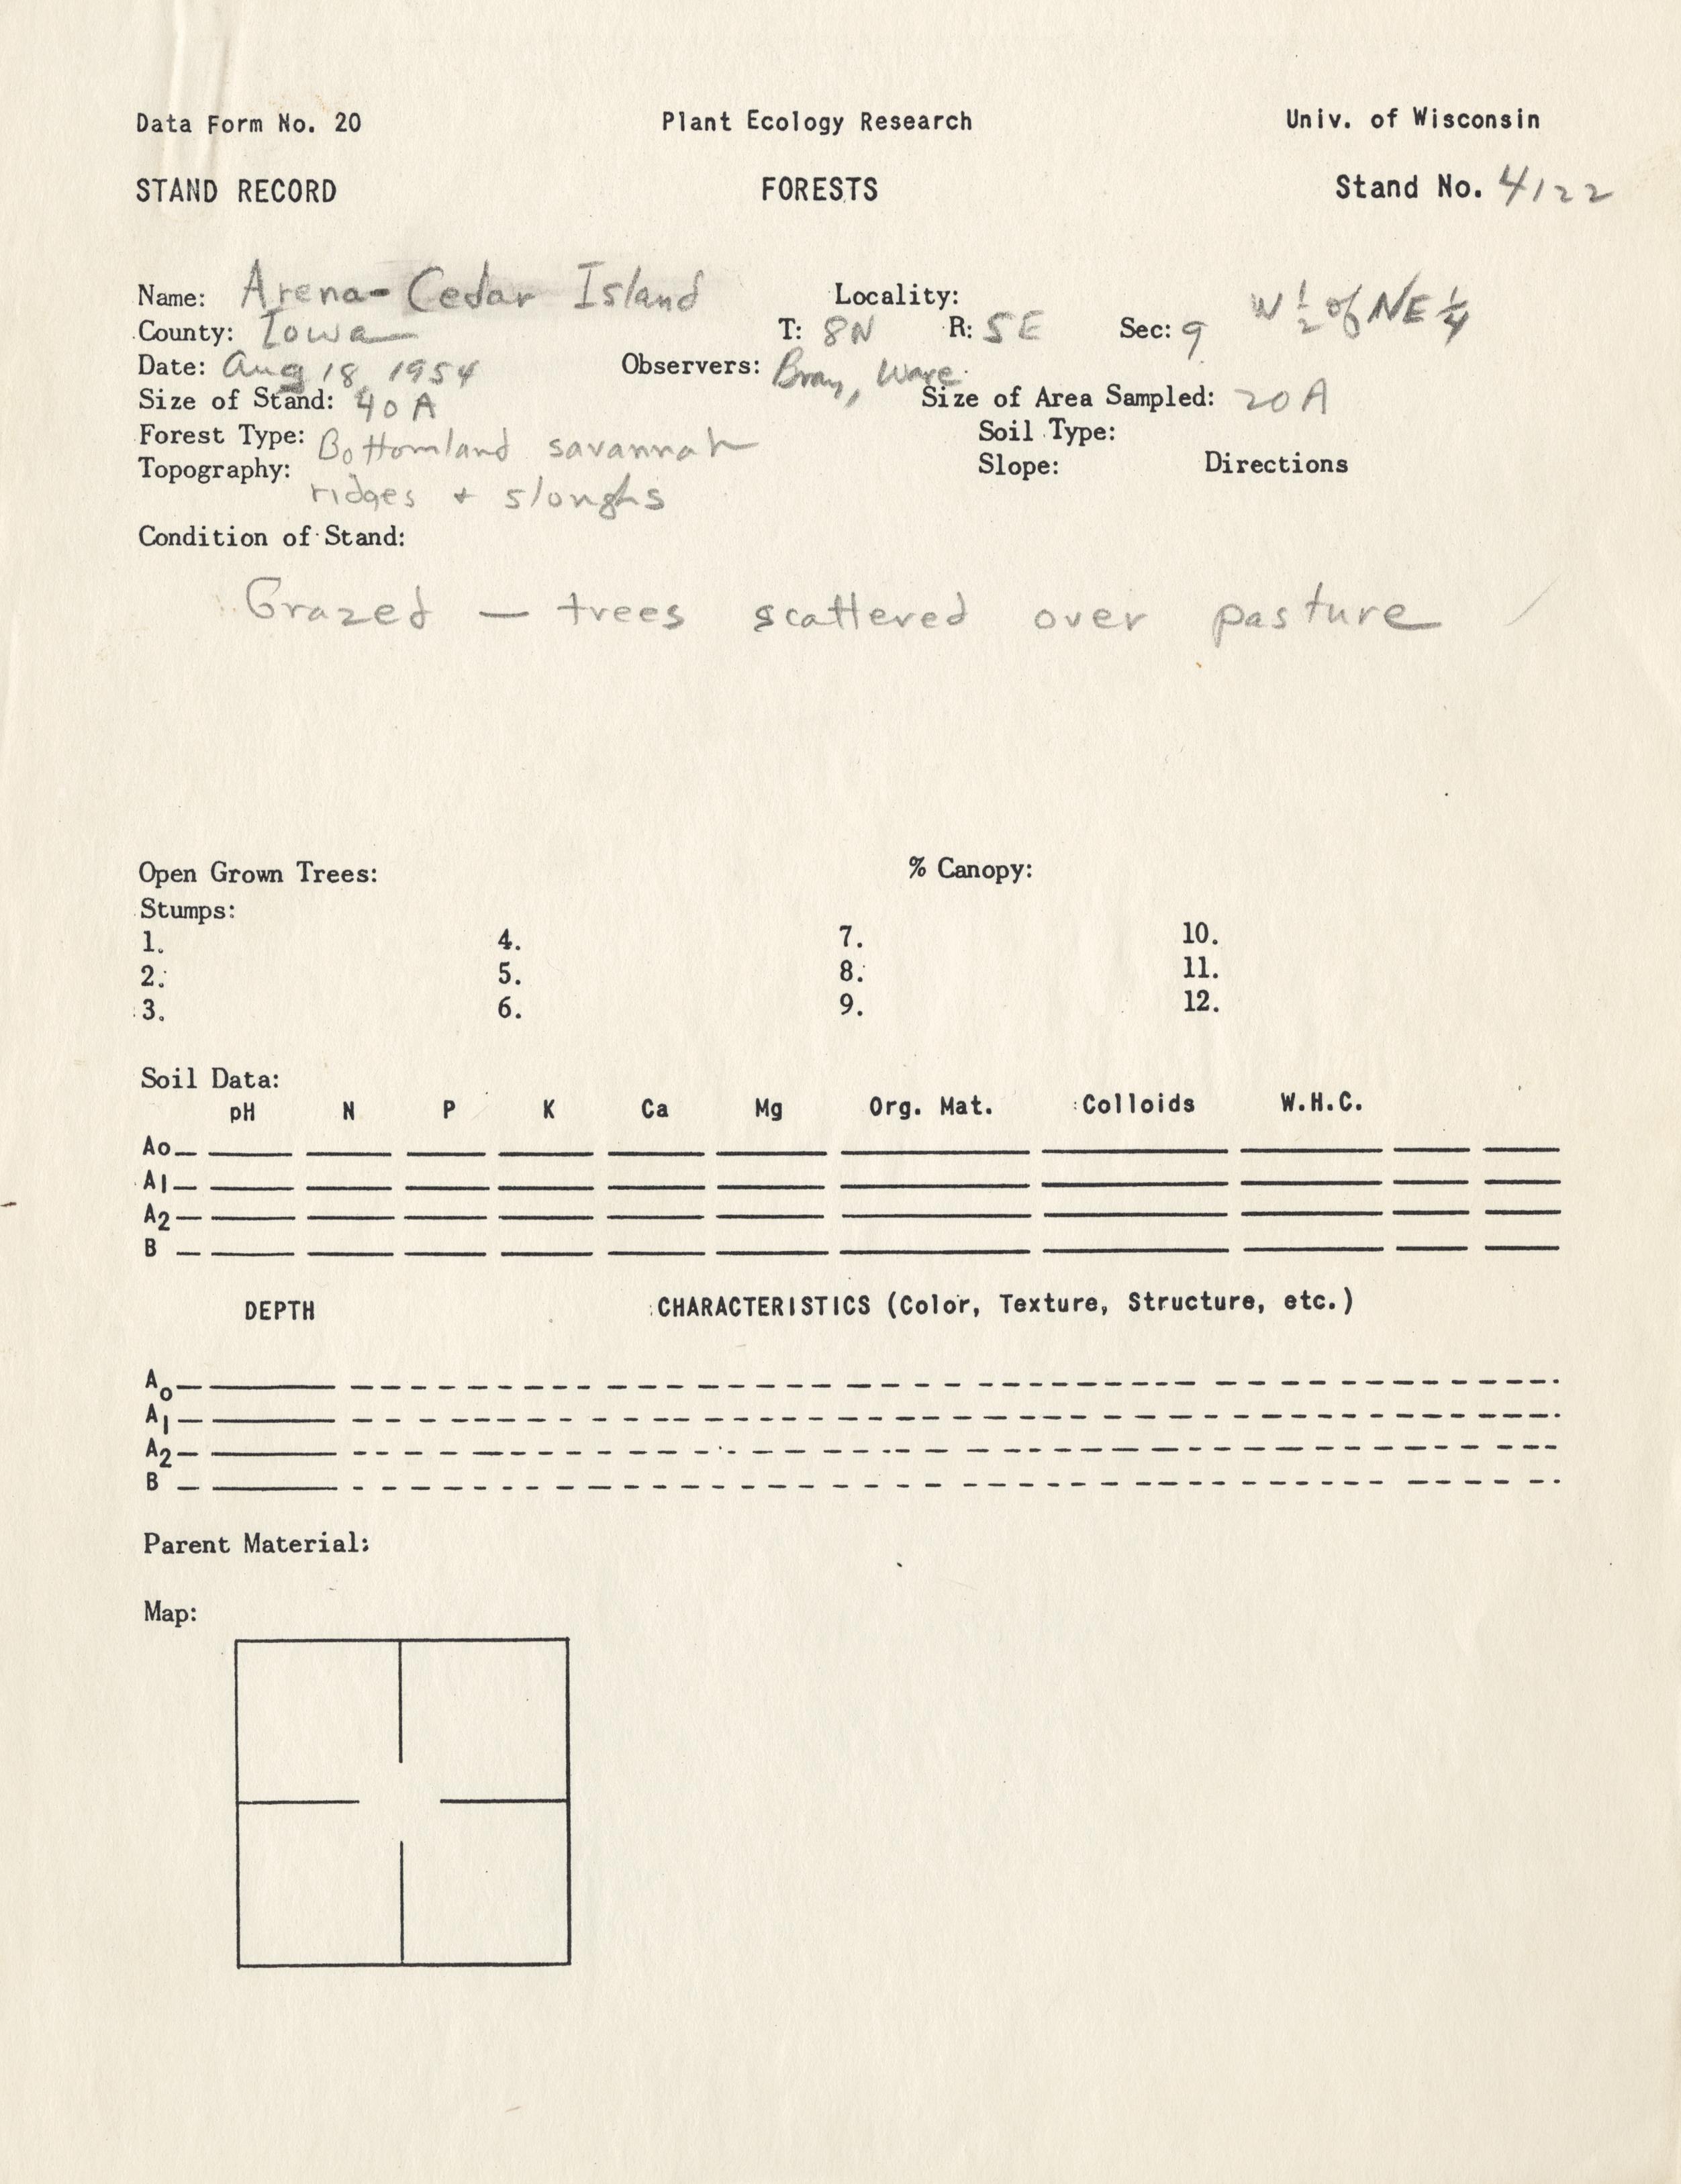 Data Form No. 20 Plant Ecology Research Univ. of Wisconsin
STAND RECORD FORESTS Stand No. 4122
Name: Arena-Cedar Island Locality: W 1/2 of NE 1/4
County: Iowa T: 8N R: 5E Sec: 9
Date: Aug 18 1954 Observers: Bray, Ware
Size of Stand: 40 A Size of Area Sampled: 20 A
Forest Type: Bottomland savannah Soil Type:
Topography: Slope: Directions
ridges + sloughs
Condition of Stand:
Grazed — trees scattered over pasture
Open Grown Trees: % Canopy:
Stumps:
1. 4. 7. 10.
2. 5. 8. 11.
3. 6. 9. 12.
Soil Data:
pH N P K Ca Mg Org. Mat. Colloids W.H.C.
Ao
A1
A2
B
DEPTH CHARACTERISTICS (Color, Texture, Structure, etc.)
Ao
A1
A2
B
Parent Material:
Map: